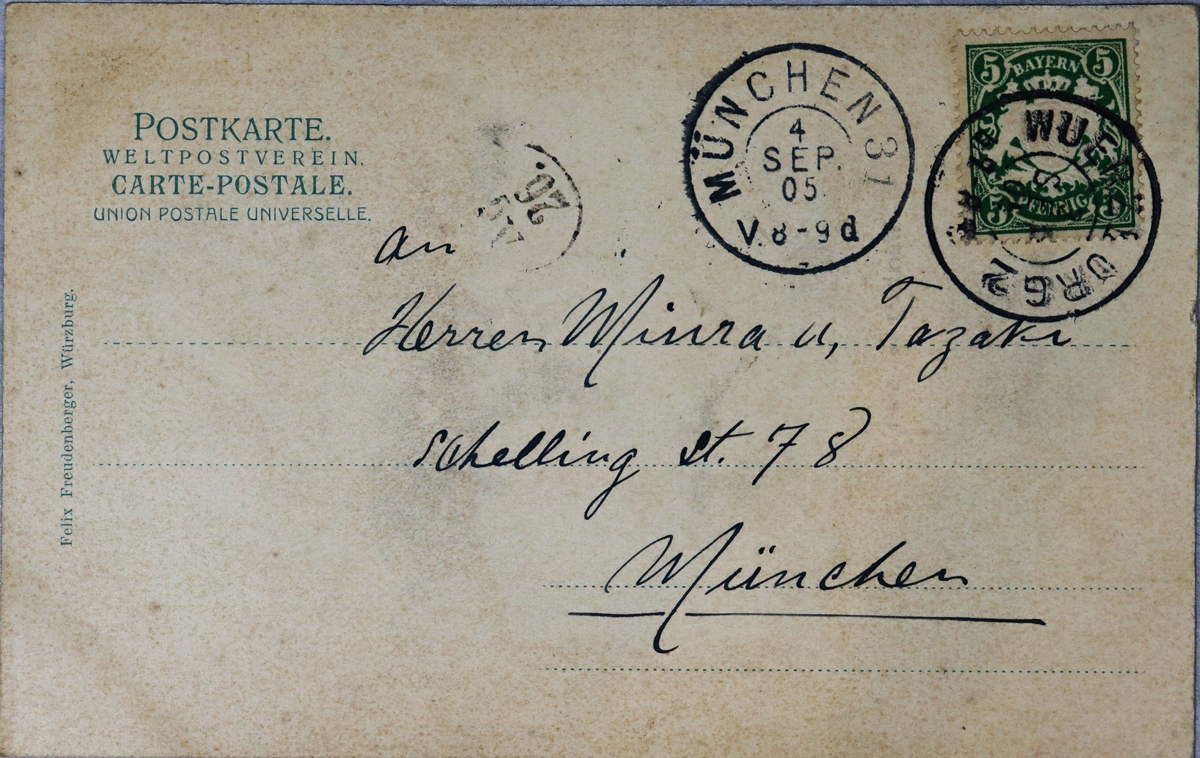 POSTKARTE.
WELTPOSTVEREIN.
CARTE-POSTALE.
UNION POSTALE UNIVERSELLE.
MÜNCHEN 31
4
SEP.
05
V. 8-9d
5 BAYERN 5
PFENNIG
26.
an
Herren Miura u, Tazaki
Schelling st. 78
München
Felix Freudenberger, Würzburg.